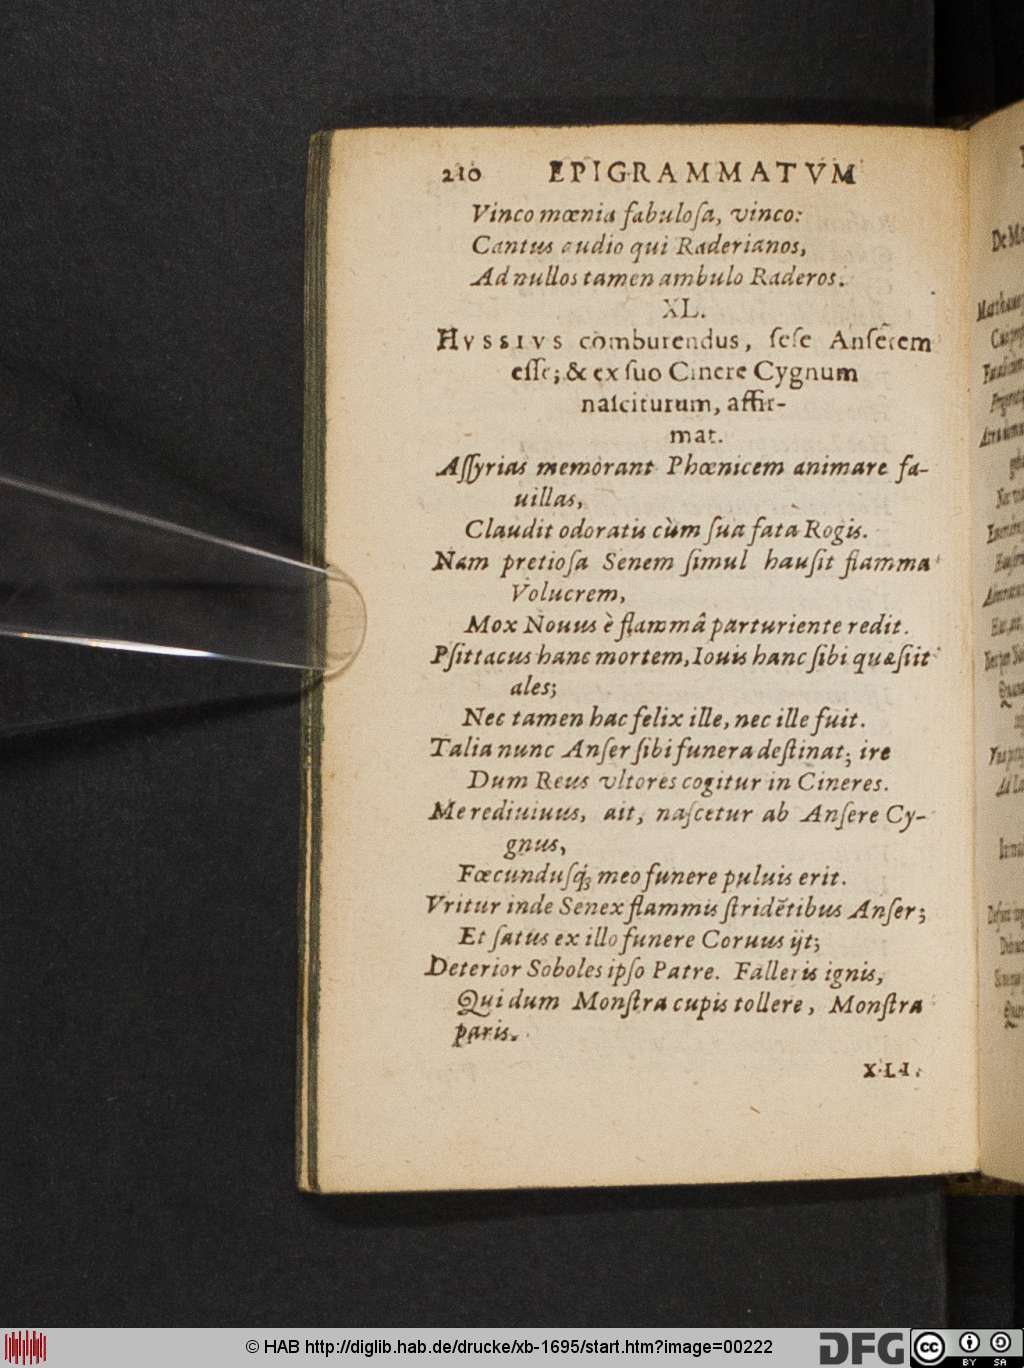 210 EPIGRAMMATVM
Vinco mœnia fabuloſa, vinco:
Cantus audio qui Raderianos,
Ad nullos tamen ambulo Raderos.
XL.
HVSSIVS comburendus, ſeſe Anſerem
eſſe; & ex ſuo Cinere Cygnum
naſciturum, affir-
mat.
Aſſyrias memorant Phœnicem animare fa-
uillas,
Claudit odoratis cùm ſua fata Rogis.
Nam pretioſa Senem ſimul hauſit flamma
Volucrem,
Mox Nouus è flammâ parturiente redit.
Pſittacus hanc mortem, Iouis hanc ſibi quæſiit
ales;
Nec tamen hac felix ille, nec ille fuit.
Talia nunc Anſer ſibi funera deſtinat; ire
Dum Reus vltores cogitur in Cineres.
Me rediuiuus, ait, naſcetur ab Anſere Cy-
gnus,
Fœcunduſq́; meo funere puluis erit.
Vritur inde Senex flammis ſtridẽtibus Anſer;
Et ſatus ex illo funere Coruus ijt;
Deterior Soboles ipſo Patre. Falleris ignis,
Qui dum Monſtra cupis tollere, Monſtra
paris.
XLI.
© HAB http://diglib.hab.de/drucke/xb-1695/start.htm?image=00222
DFG
cc BY SA